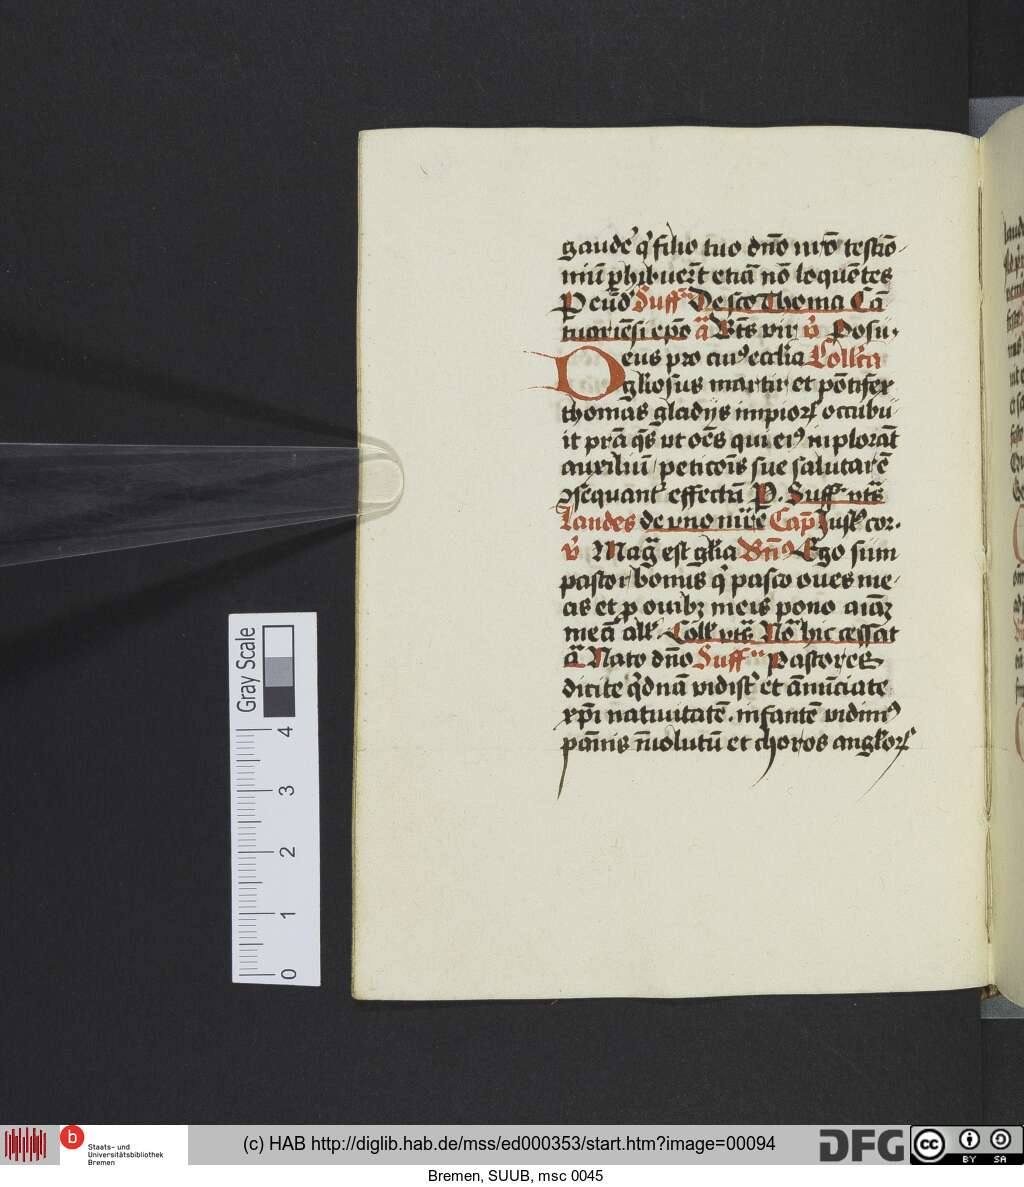 gaudē q̄ filio tuo dn̄o nr̄o testiō
niū ꝓhibuer̄t etiā nō loquētes
P eūd Suff De scō Thoma Cā
tuariēsi ep̄o a Bt̄s vir v̄ Posu.
Deus pro cuiꝰ ecclīa Coll̄cta
gl̄iosus martir et pōtifex
thomas gladijs impiorꝝ occubu
it pr̄a q̄s vt oēs qui eiꝰ īplorāt
auxiliū peticōīs sue salutarē
ꝯsequant̄ effectū P. Suff vt s̄
Laudes de vno mr̄e Cap̄ Iust cor.
v̄ Maḡ est gl̄ia Bn̄ꝰ Ego sum
pastor bonus q̄ pasco oues me
as et ꝓ ouibꝫ meis pono aīaꝫ
meā all. Coll vt s̄ Nō hic cessat
a Nato dn̄o Suff Pastores
dicite q̄dnā vidist̄ et ānūciate
xp̄i natiuitatē. infantē vidimꝰ
pānis īuolutū et choros angl̄orꝝ
Gray Scale
4
3
2
1
0
b
Staats- und
Universitätsbibliothek
Bremen
(c) HAB http://diglib.hab.de/mss/ed000353/start.htm?image=00094
DFG
cc
BY SA
Bremen, SUUB, msc 0045